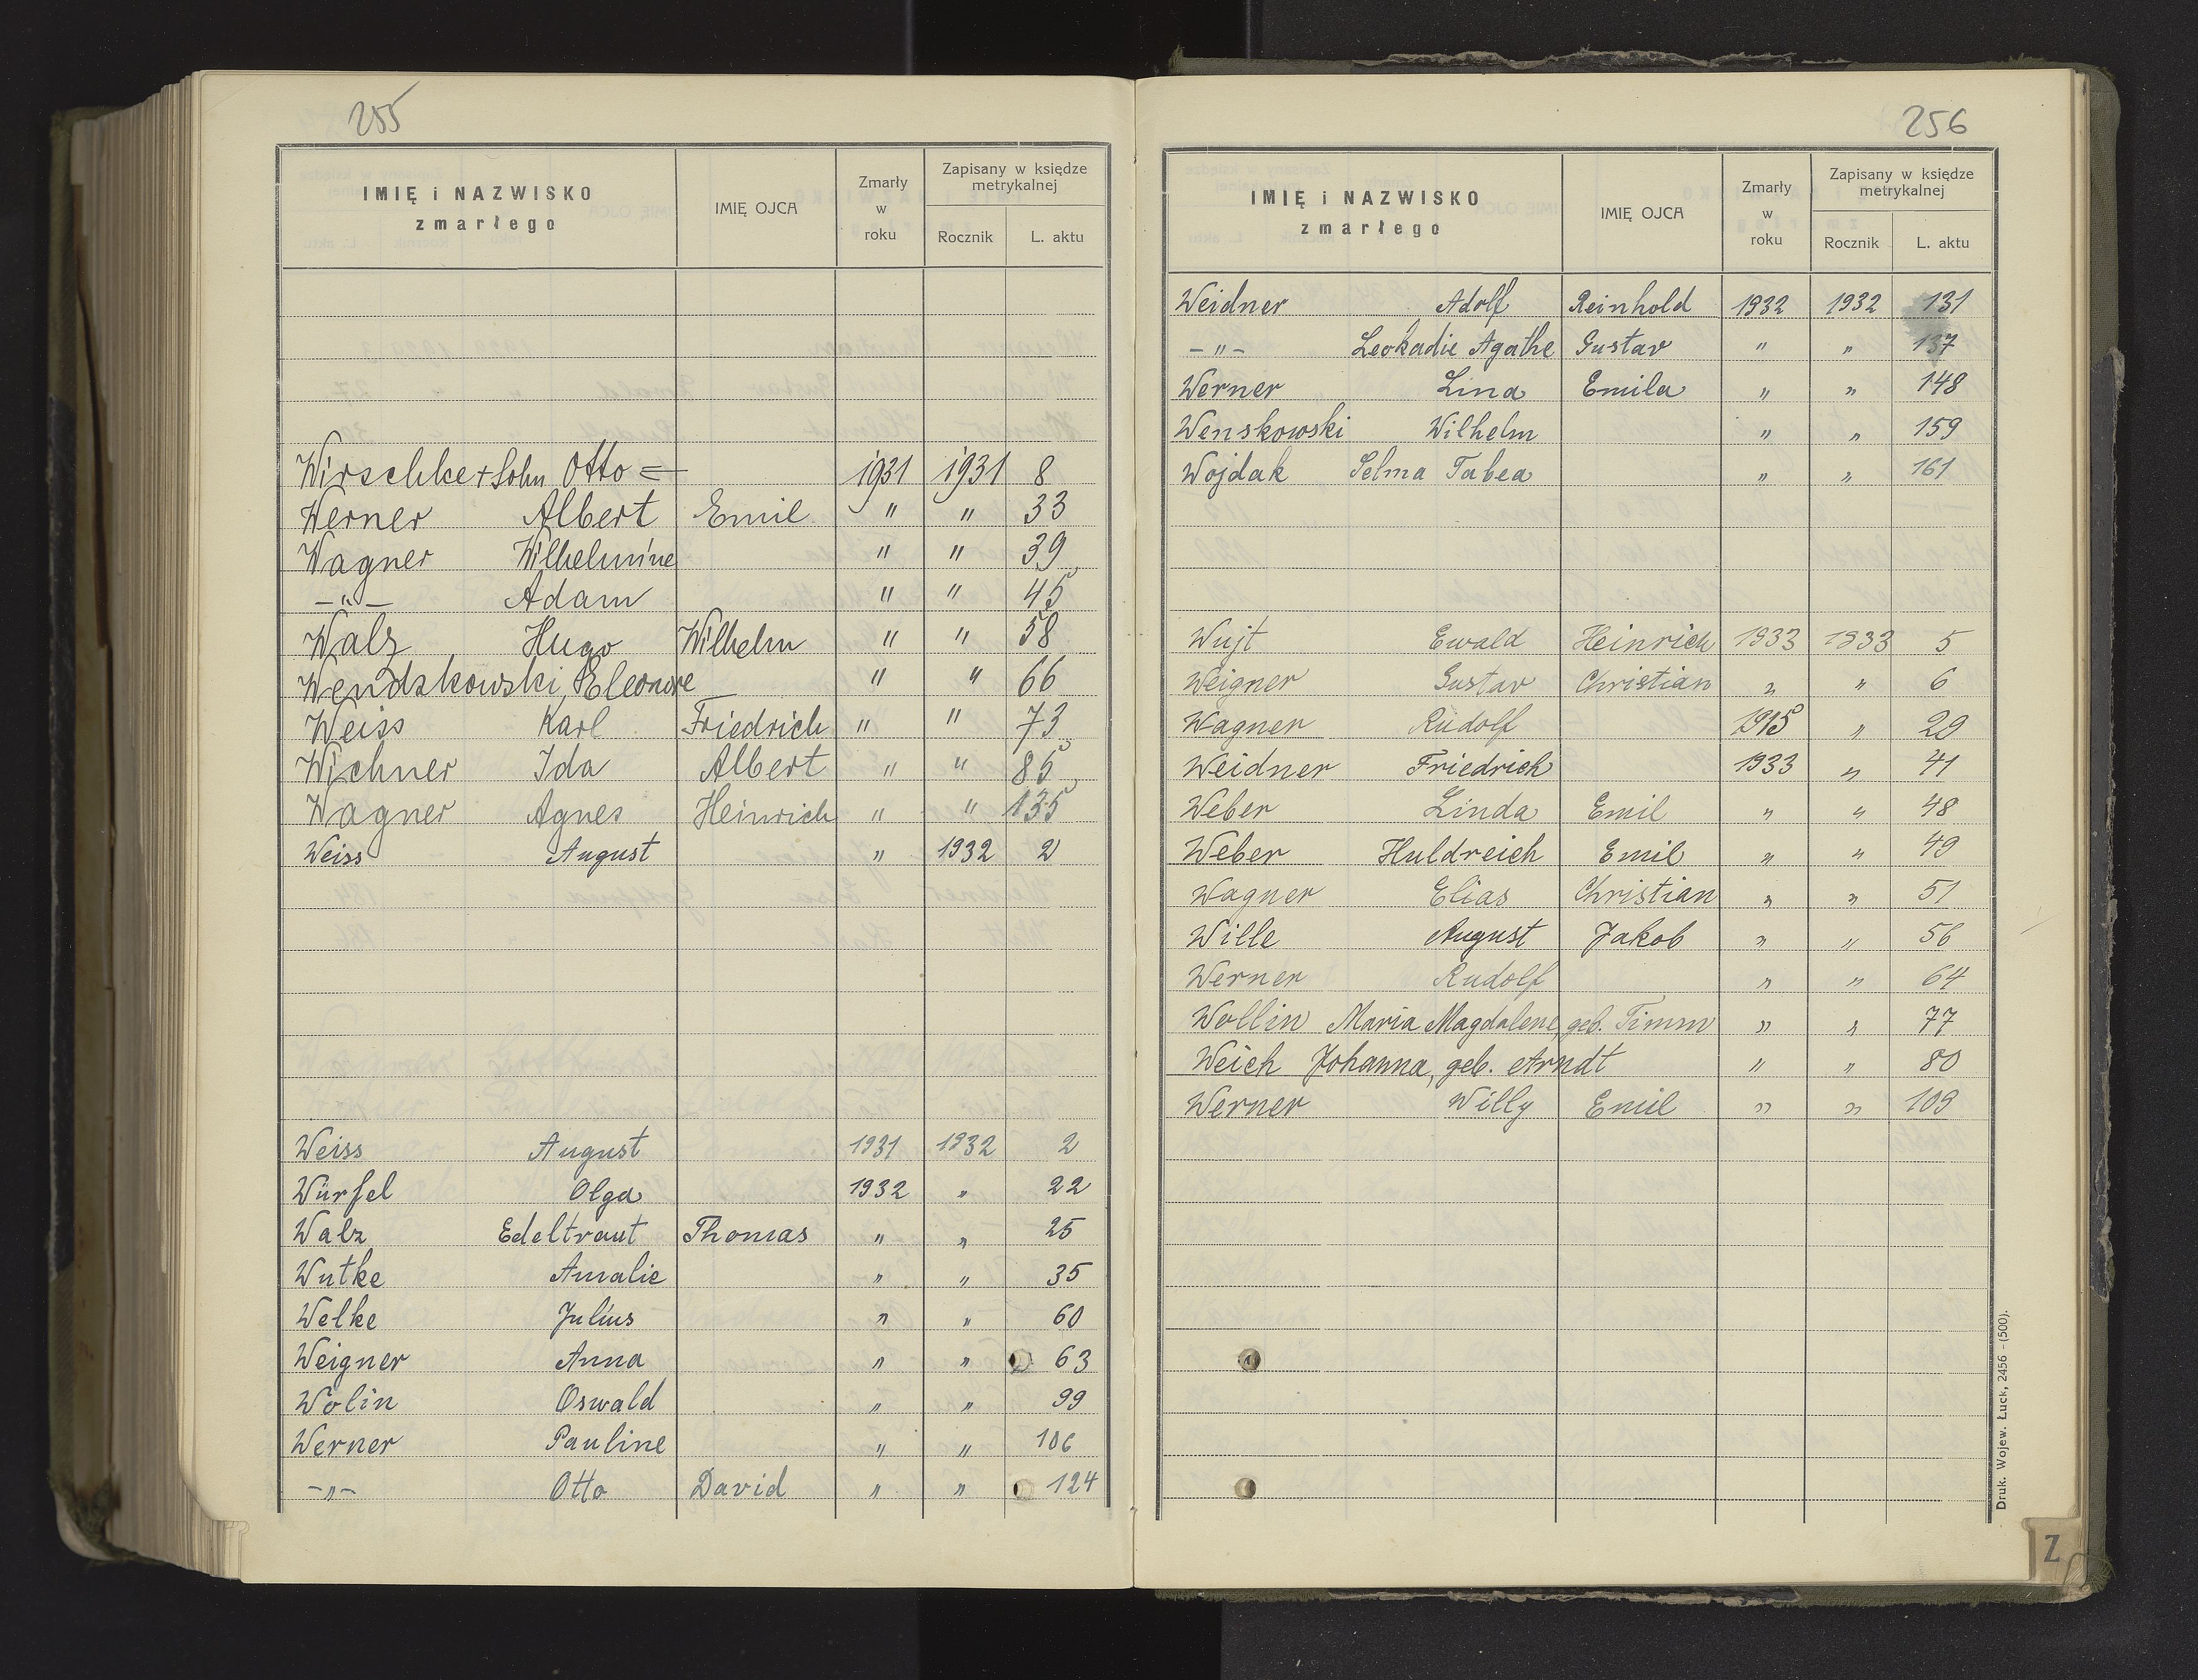 255
IMIĘ i NAZWISKO zmarłego IMIĘ OJCA Zmarły w roku Zapisany w księdze metrykalnej Rocznik L. aktu
Wirschke + Sohn Otto = 1931 1931 8
Werner Albert Emil " " 33
Wagner Wilhelmine " " 39
-"- Adam " " 45
Walz Hugo Wilhelm " " 58
Wendzkowski, Eleonore " " 66
Weiss Karl Friedrich " " 73
Wichner Ida Albert " " 85
Wagner Agnes Heinrich " " 135
Weiss August " 1932 2
Weiss August 1931 1932 2
Würfel Olga 1932 " 22
Walz Edeltraut Thomas " " 25
Wutke Amalie " " 35
Welke Julius " " 60
Weigner Anna " " 63
Wolin Oswald " " 99
Werner Pauline " " 106
-"- Otto David " " 124
256
IMIĘ i NAZWISKO zmarłego IMIĘ OJCA Zmarły w roku Zapisany w księdze metrykalnej Rocznik L. aktu
Weidner Adolf Reinhold 1932 1932 131
-"- Leokadie Agathe Gustav " " 137
Werner Lina Emila " " 148
Wenskowski Wilhelm " " 159
Wojdak Selma Tabea " " 161
Wujt Ewald Heinrich 1933 1933 5
Weigner Gustav Christian " " 6
Wagner Rudolf 1915 " 29
Weidner Friedrich 1933 " 41
Weber Linda Emil " " 48
Weber Huldreich Emil " " 49
Wagner Elias Christian " " 51
Wille August Jakob " " 56
Werner Rudolf " " 64
Wollin Maria Magdalene, geb. Timm " " 77
Weich Johanna, geb. Arndt " " 80
Werner Willy Emil " " 109
Druk. Wojew. Łuck, 2456 - (500).
Z